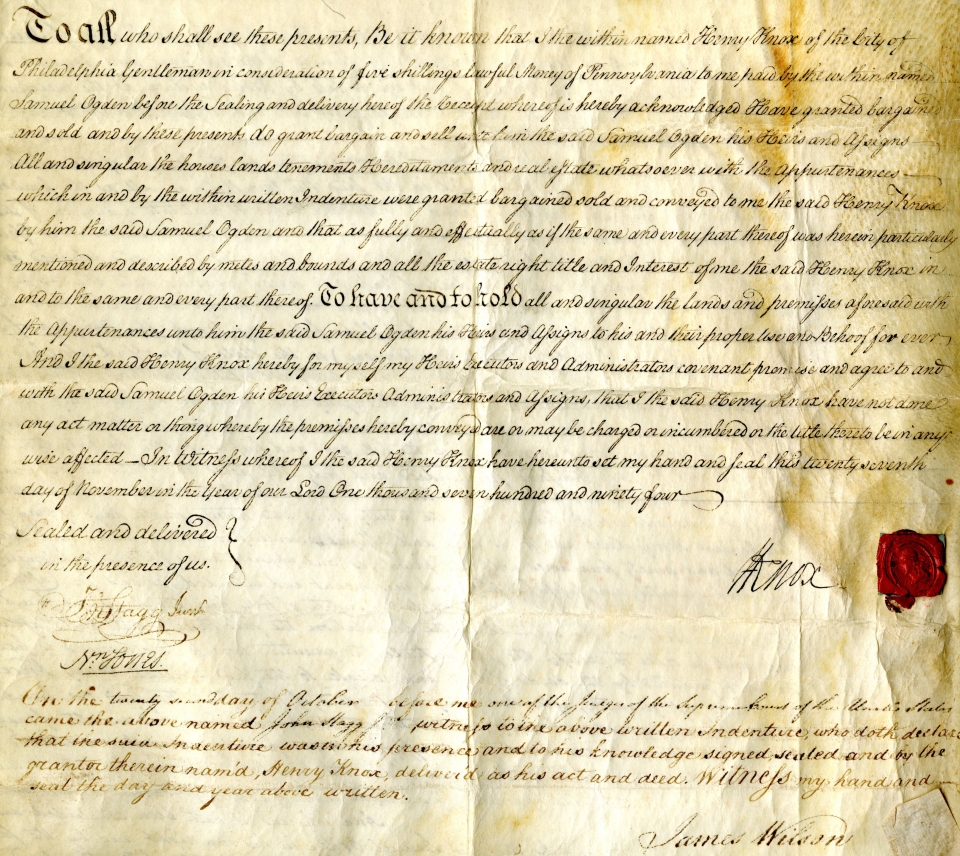 To all who shall see these presents, Be it known that I the within named Henry Knox of the City of
Philadelphia Gentleman in consideration of five shillings lawful Money of Pennsylvania to me paid by the within named
Samuel Ogden before the Sealing and delivery hereof the Receipt whereof is hereby acknowledged Have granted bargained
and sold and by these presents do grant bargain and sell unto him the said Samuel Ogden his Heirs and Assigns
All and singular the houses lands tenements Hereditaments and real estate whatsoever with the Appurtenances
which in and by the within written Indenture were granted bargained sold and conveyed to me the said Henry Knox
by him the said Samuel Ogden and that as fully and effectually as if the same and every part thereof was herein particularly
mentioned and described by metes and bounds and all the estate right title and Interest of me the said Henry Knox in
and to the same and every part thereof. To have and to hold all and singular the lands and premisses aforesaid with
the Appurtenances unto him the said Samuel Ogden his Heirs and Assigns to his and their proper use and Behoof for ever
And I the said Henry Knox hereby for myself my Heirs Executors and Administrators covenant promise and agree to and
with the said Samuel Ogden his Heirs Executors Administrators and Assigns, that I the said Henry Knox have not done
any act matter or thing whereby the premisses hereby conveyed are or may be charged or incumbered or the title thereto be in any
wise affected — In Witness whereof I the said Henry Knox have hereunto set my hand and seal this twenty seventh
day of November in the Year of our Lord One thousand seven hundred and ninety four
Sealed and delivered
in the presence of us.
HKnox
Jno Stagg Junr
Wm Jones.
On the twenty second day of October before me one of the Judges of the Supreme Court of the United States
came the above named John Stagg Jr witness to the above written Indenture, who doth declare
that the said Indenture was in his presence, and to his knowledge signed sealed and by the
grantor therein nam'd, Henry Knox, deliver'd as his act and deed. Witness my hand and
seal the day and year above written.
James Wilson